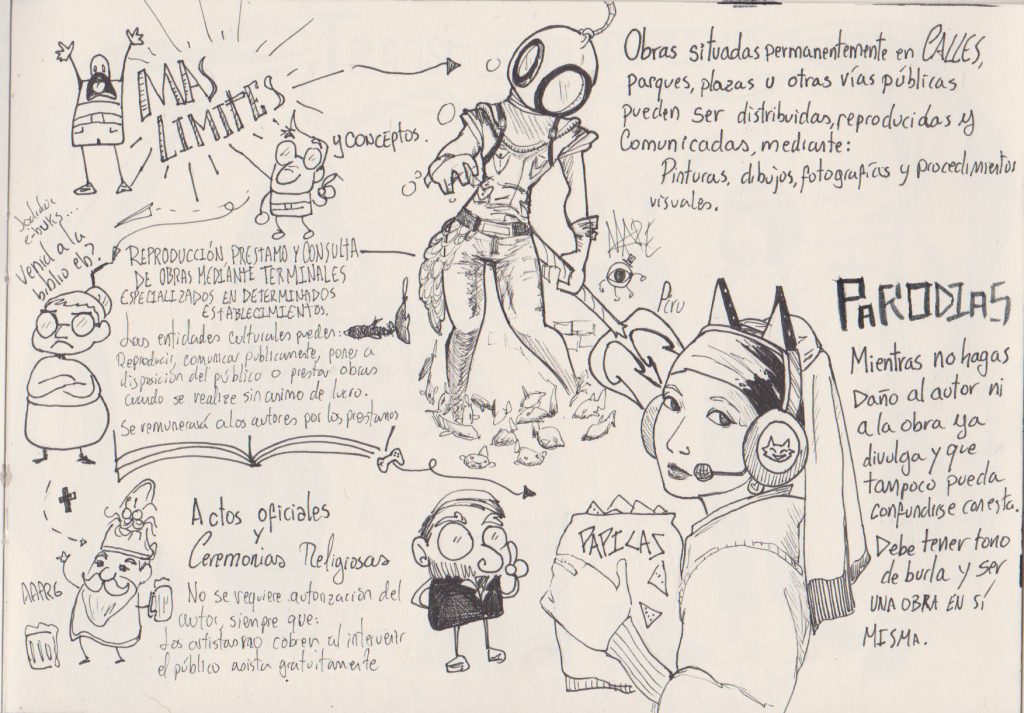 MAS
LIMITES
y CONCEPTOS.
e-buks...
Venid a la
biblio eh?
REPRODUCCIÓN, PRESTAMO Y CONSULTA
DE OBRAS MEDIANTE TERMINALES
ESPECIALIZADOS EN DETERMINADOS
ESTABLECIMIENTOS.
Las entidades culturales pueden:
Reproducir, comunicar publicamente, poner a
disposición del público o prestar obras
cuando se realize sin animo de lucro.
Se remunerará a los autores por los prestamos
Obras situadas permanentemente en CALLES,
parques, plazas u otras vías públicas
pueden ser distribuidas, reproducidas y
Comunicadas, mediante:
Pinturas, dibujos, fotografías y procedimientos
visuales.
PARODIAS
Mientras no hagas
Daño al autor ni
a la obra ya
divulga y que
tampoco pueda
confundirse con esta.
Debe tener tono
de burla y ser
UNA OBRA EN SÍ
MISMA.
PAPICAS
AAARG
Actos oficiales
y
Ceremonias Religiosas
No se requiere autorización del
autor, siempre que:
Los artistas no cobren al intervenir
el público asista gratuitamente